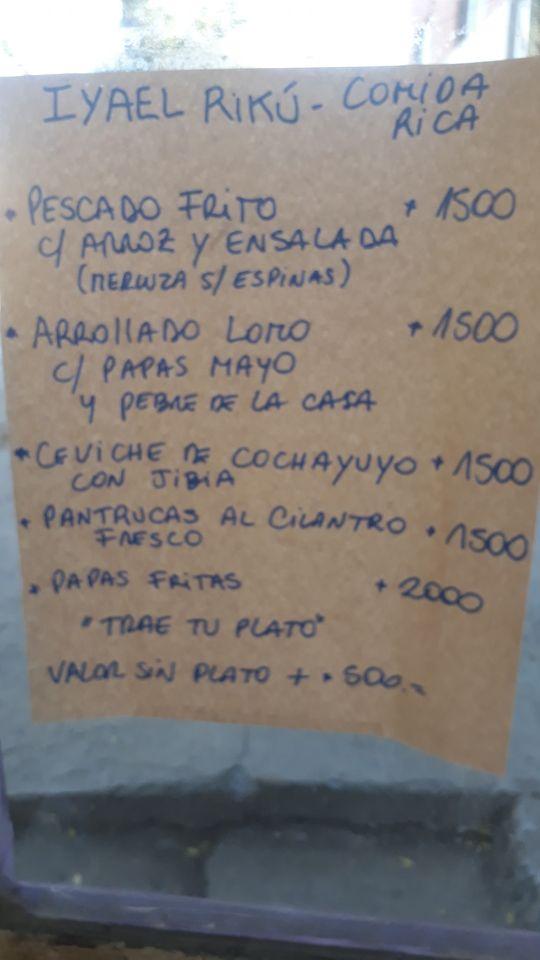 IYAEL RIKÚ - COMIDA
RICA
• PESCADO FRITO • 1500
C/ ARROZ Y ENSALADA
(MERLUZA S/ ESPINAS)
• ARROllADO LOMO • 1500
C/ PAPAS MAYO
Y PEBRE DE LA CASA
• CEVICHE DE COCHAYUYO • 1500
CON JIBIA
• PANTRUCAS AL CILANTRO • 1500
FRESCO
• PAPAS FRITAS • 2000
"TRAE TU PLATO"
VALOR SIN PLATO + • 500.-